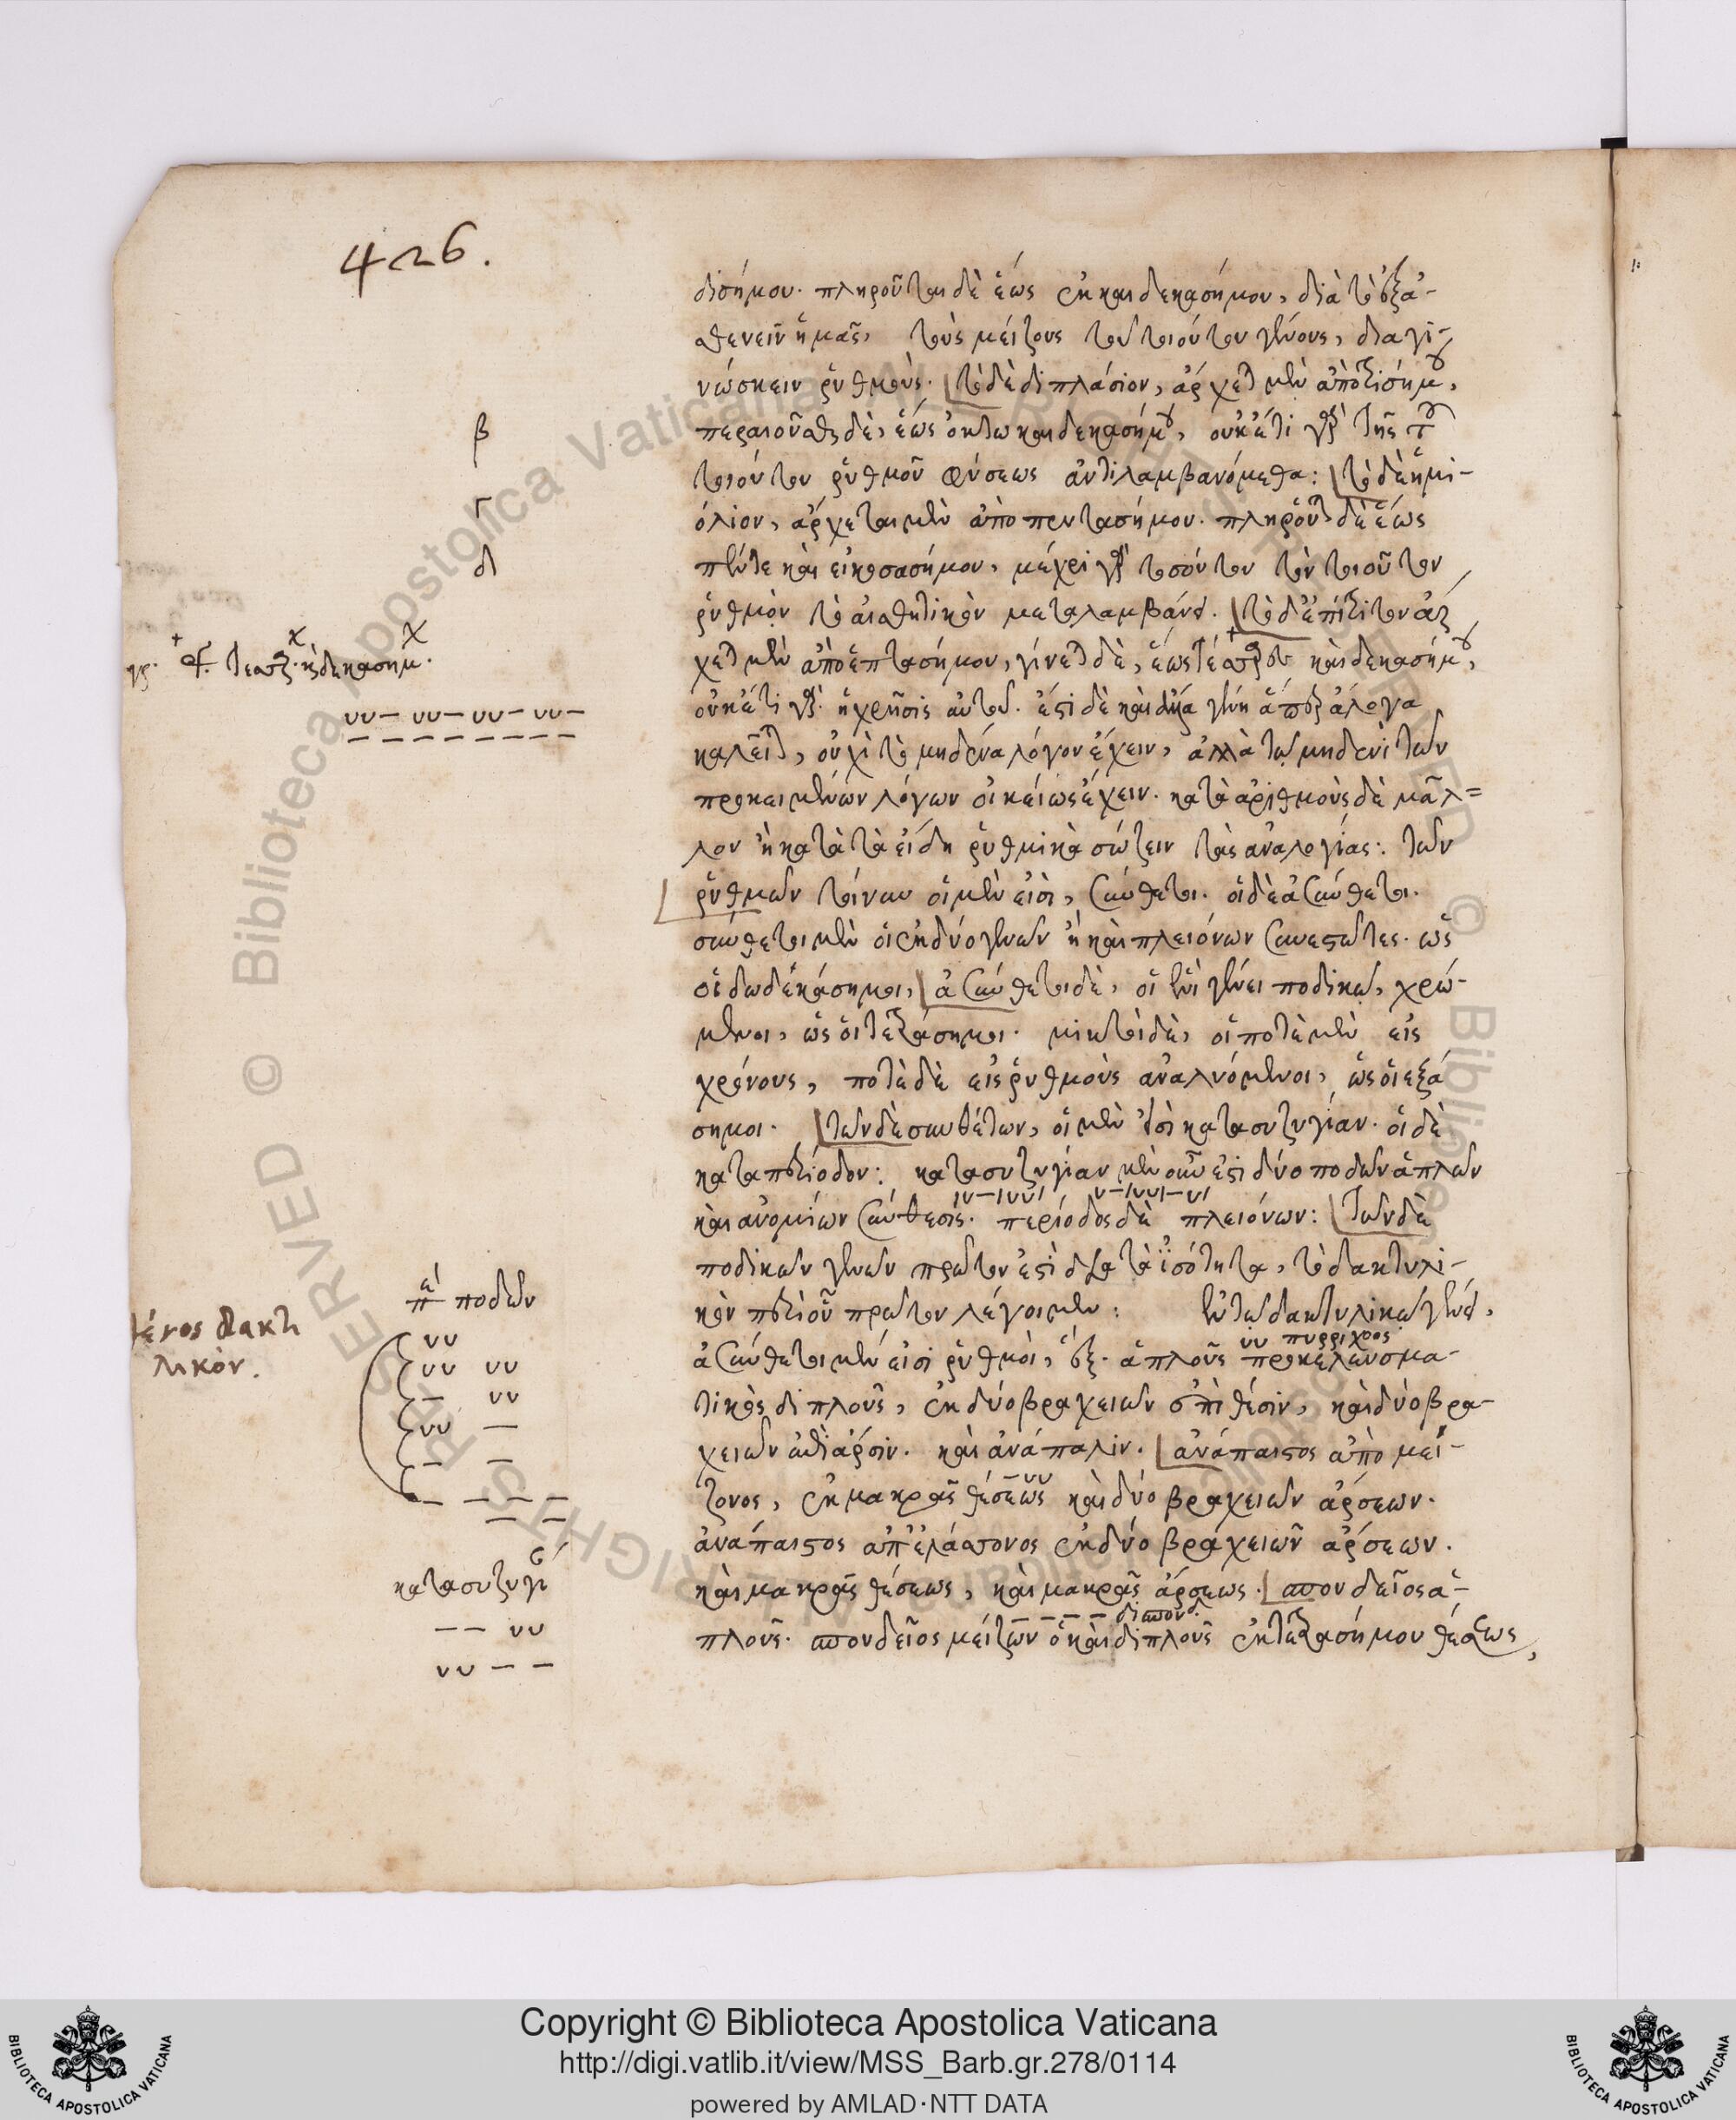 426.
δισήμου. πληροῦται δὲ ἕως ἑκκαιδεκασήμου, διὰ τὸ ἐξα-
σθενεῖν ἡμᾶς, τοὺς μείζους τοῦ τοιούτου γένους, διαγι-
νώσκειν ῥυθμούς. τὸ δὲ διπλάσιον, ἄρχεται μὲν ἀπὸ τρισήμου,
β
περαιοῦται δὲ, ἕως ὀκτωκαιδεκασήμου, οὐκέτι γὰρ τῆς τοῦ
τοιούτου ῥυθμοῦ φύσεως ἀντιλαμβανόμεθα: τὸ δὲ ἡμι-
γ
όλιον, ἄρχεται μὲν ἀπὸ πεντασήμου. πληροῦται δὲ ἕως
δ
πέντε καὶ εἰκοσασήμου, μέχρι γὰρ τοσούτου τὸν τοιοῦτον
ῥυθμὸν τὸ αἰσθητικὸν μεταλαμβάνει. τὸ δ' ἐπίτριτον ἄρ
χεται μὲν ἀπὸ ἑπτασήμου, γίνεται δὲ, ἕως τεσσάρων καὶ δεκασήμου,
οὐκέτι γὰρ ἡ χρῆσις αὐτοῦ. ἔστι δὲ καὶ ἄλλα γένη ἅπερ ἄλογα
καλεῖται, οὐχὶ τὸ μηδένα λόγον ἔχειν, ἀλλὰ τῷ μηδενὶ τῶν
προκειμένων λόγων οἰκείως ἔχειν. κατὰ ἀριθμοὺς δὲ μᾶλ=
λον ἢ κατὰ τὰ εἴδη ῥυθμικὰ σώζειν τὰς ἀναλογίας: τῶν
ῥυθμῶν τοίνυν οἱ μὲν εἰσὶ, σύνθετοι. οἱ δὲ ἀσύνθετοι.
σύνθετοι μὲν οἱ ἐκ δύο γενῶν ἢ καὶ πλειόνων συνεστῶτες. ὡς
οἱ δωδεκάσημοι, ἀσύνθετοι δὲ, οἱ ἑνὶ γένει ποδικῷ, χρώ-
μενοι, ὡς οἱ τετράσημοι. μικτοὶ δὲ, οἱ ποτὲ μὲν εἰς
χρόνους, ποτὲ δὲ εἰς ῥυθμοὺς ἀναλυόμενοι, ὡς οἱ ἑξά
σημοι. τῶν δὲ συνθέτων, οἱ μὲν εἰσὶ κατὰ συζυγίαν. οἱ δὲ
κατὰ περίοδον: κατὰ συζυγίαν μὲν οὖν ἐστὶ δύο ποδῶν ἁπλῶν
καὶ ἀνομοίων σύνθεσις. περίοδος δὲ πλειόνων: τῶν δὲ
ποδικῶν γενῶν πρῶτον ἐστὶ διὰ τὰ ἰσότητα, τὸ δακτυλι-
ποδῶν
κὸν περὶ οὗ πρῶτον λέγοιμεν: ἐν τῷ δακτυλικῷ γένει,
γένος δακτ
λικόν.
πυρρίχιος
ἀσύνθετοι μὲν εἰσὶ ῥυθμοὶ, ἕξ. ἁπλοῦς προκελευσμα-
τικὸς διπλοῦς, ἐκ δύο βραχειῶν ἐπὶ θέσιν, καὶ δύο βρα-
χειῶν ἐπὶ ἄρσιν. καὶ ἀνάπαλιν. ἀνάπαιστος ἀπὸ μεί-
ζονος, ἐκ μακρᾶς θέσεως καὶ δύο βραχειῶν ἄρσεων.
ἀνάπαιστος ἀπ' ἐλάσσονος ἐκ δύο βραχειῶν ἄρσεων.
κατὰ συζυγί
καὶ μακρᾶς θέσεως, καὶ μακρᾶς ἄρσεως. σπονδεῖος ἁ-
πλοῦς. σπονδεῖος μείζων ὁ καὶ διπλοῦς ἐκ τετρασήμου θέσεως,
Copyright © Biblioteca Apostolica Vaticana
http://digi.vatlib.it/view/MSS_Barb.gr.278/0114
powered by AMLAD·NTT DATA
BIBLIOTECA APOSTOLICA VATICANA
BIBLIOTECA APOSTOLICA VATICANA